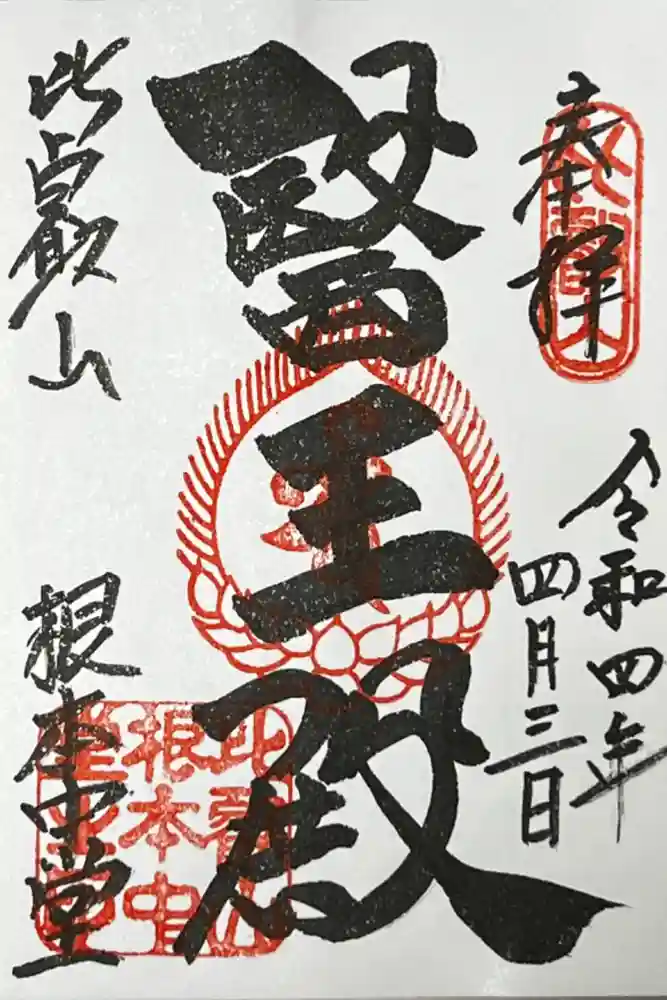 奉拝
令和四年
四月三日
醫王殿
比叡山
根本中堂
比叡山
根本中
堂之印